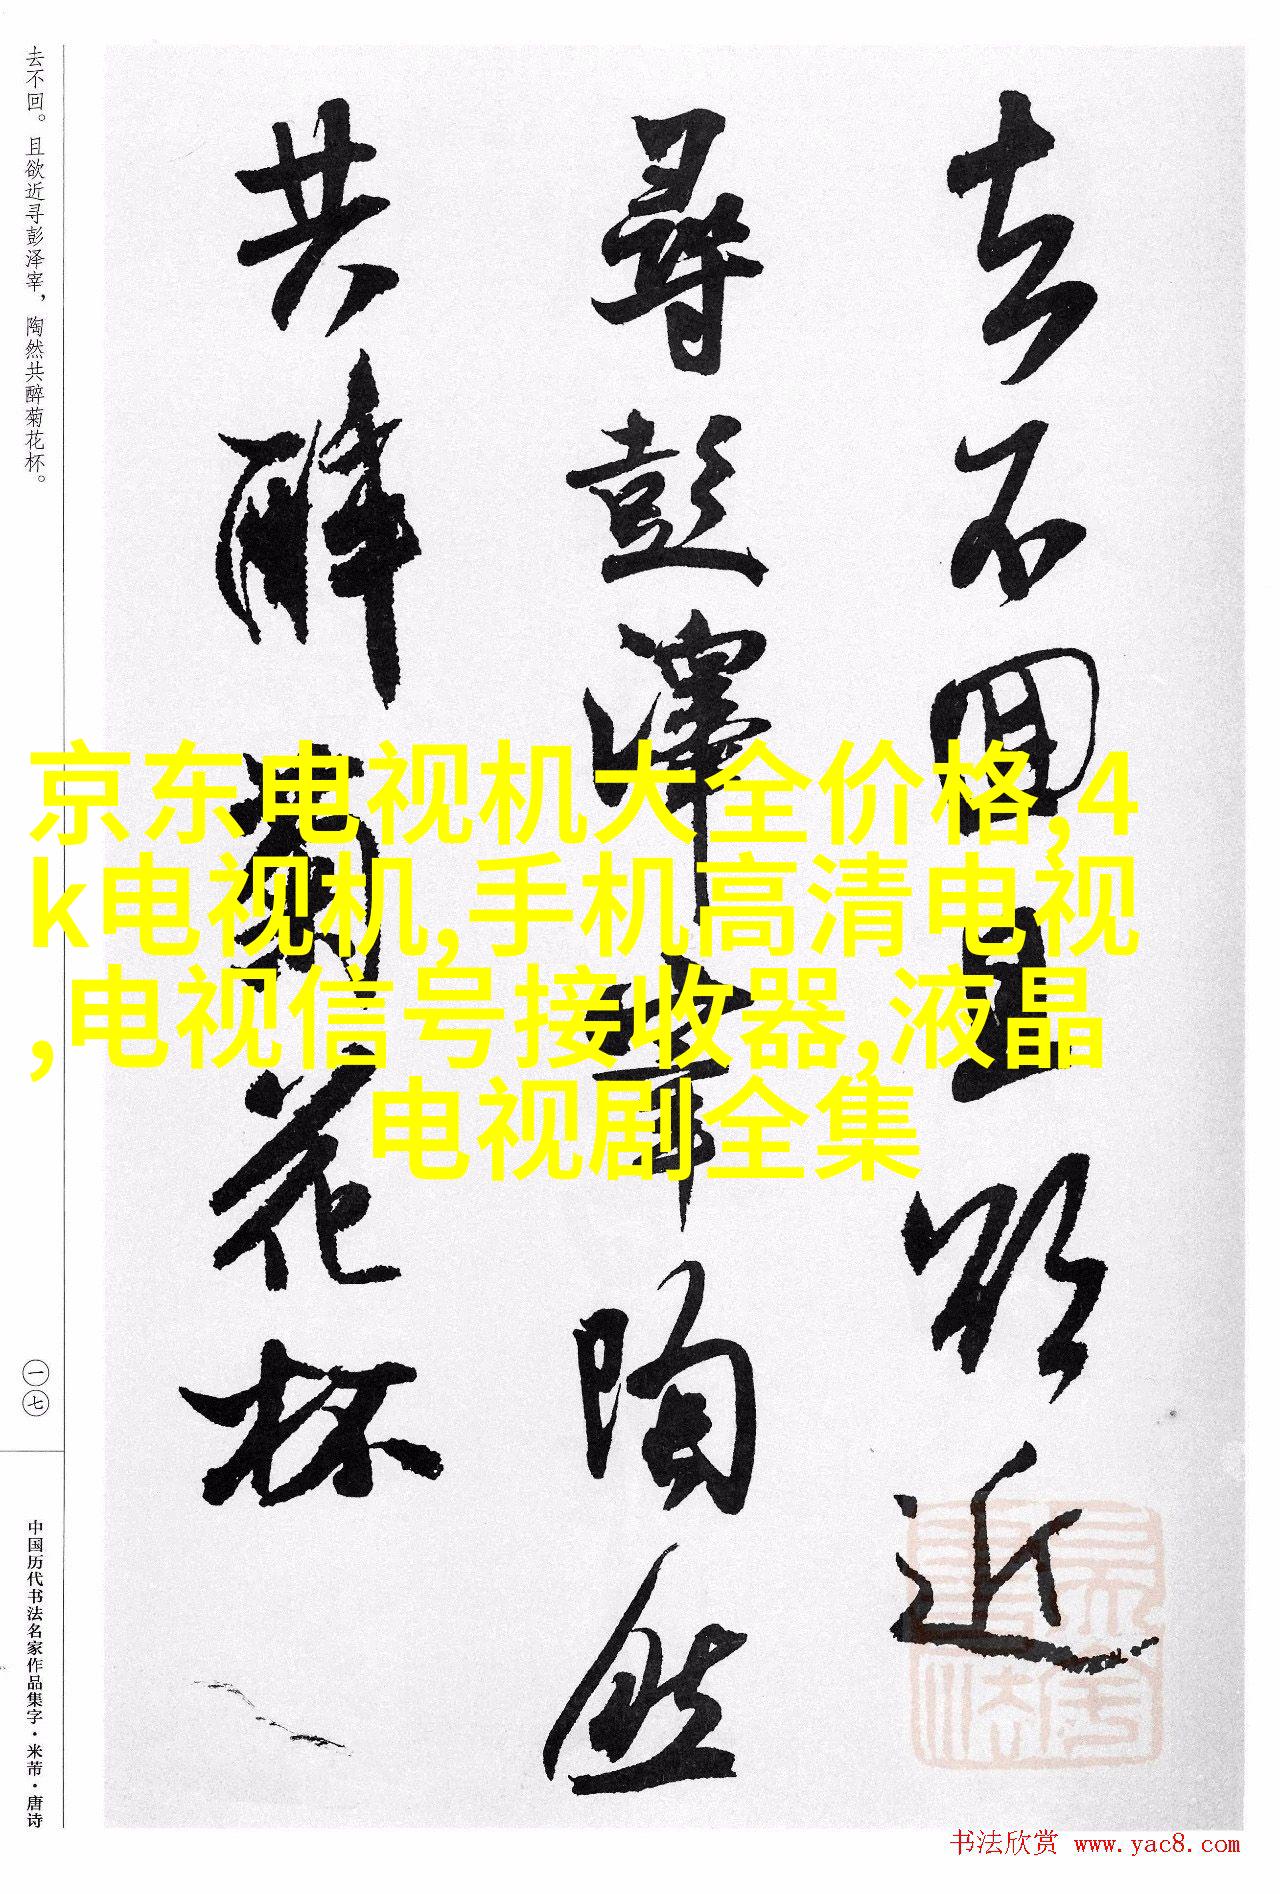 去不回且欲近
尋彭澤宰陶然
共醉菊花杯
去不回。且欲近寻彭泽宰，陶然共醉菊花杯。
一七
中国历代书法名家作品集字·米芾·唐诗
京东电视机大全价格,4
k电视机,手机高清电视
,电视信号接收器,液晶
电视剧全集
书法欣赏 www.yac8.com